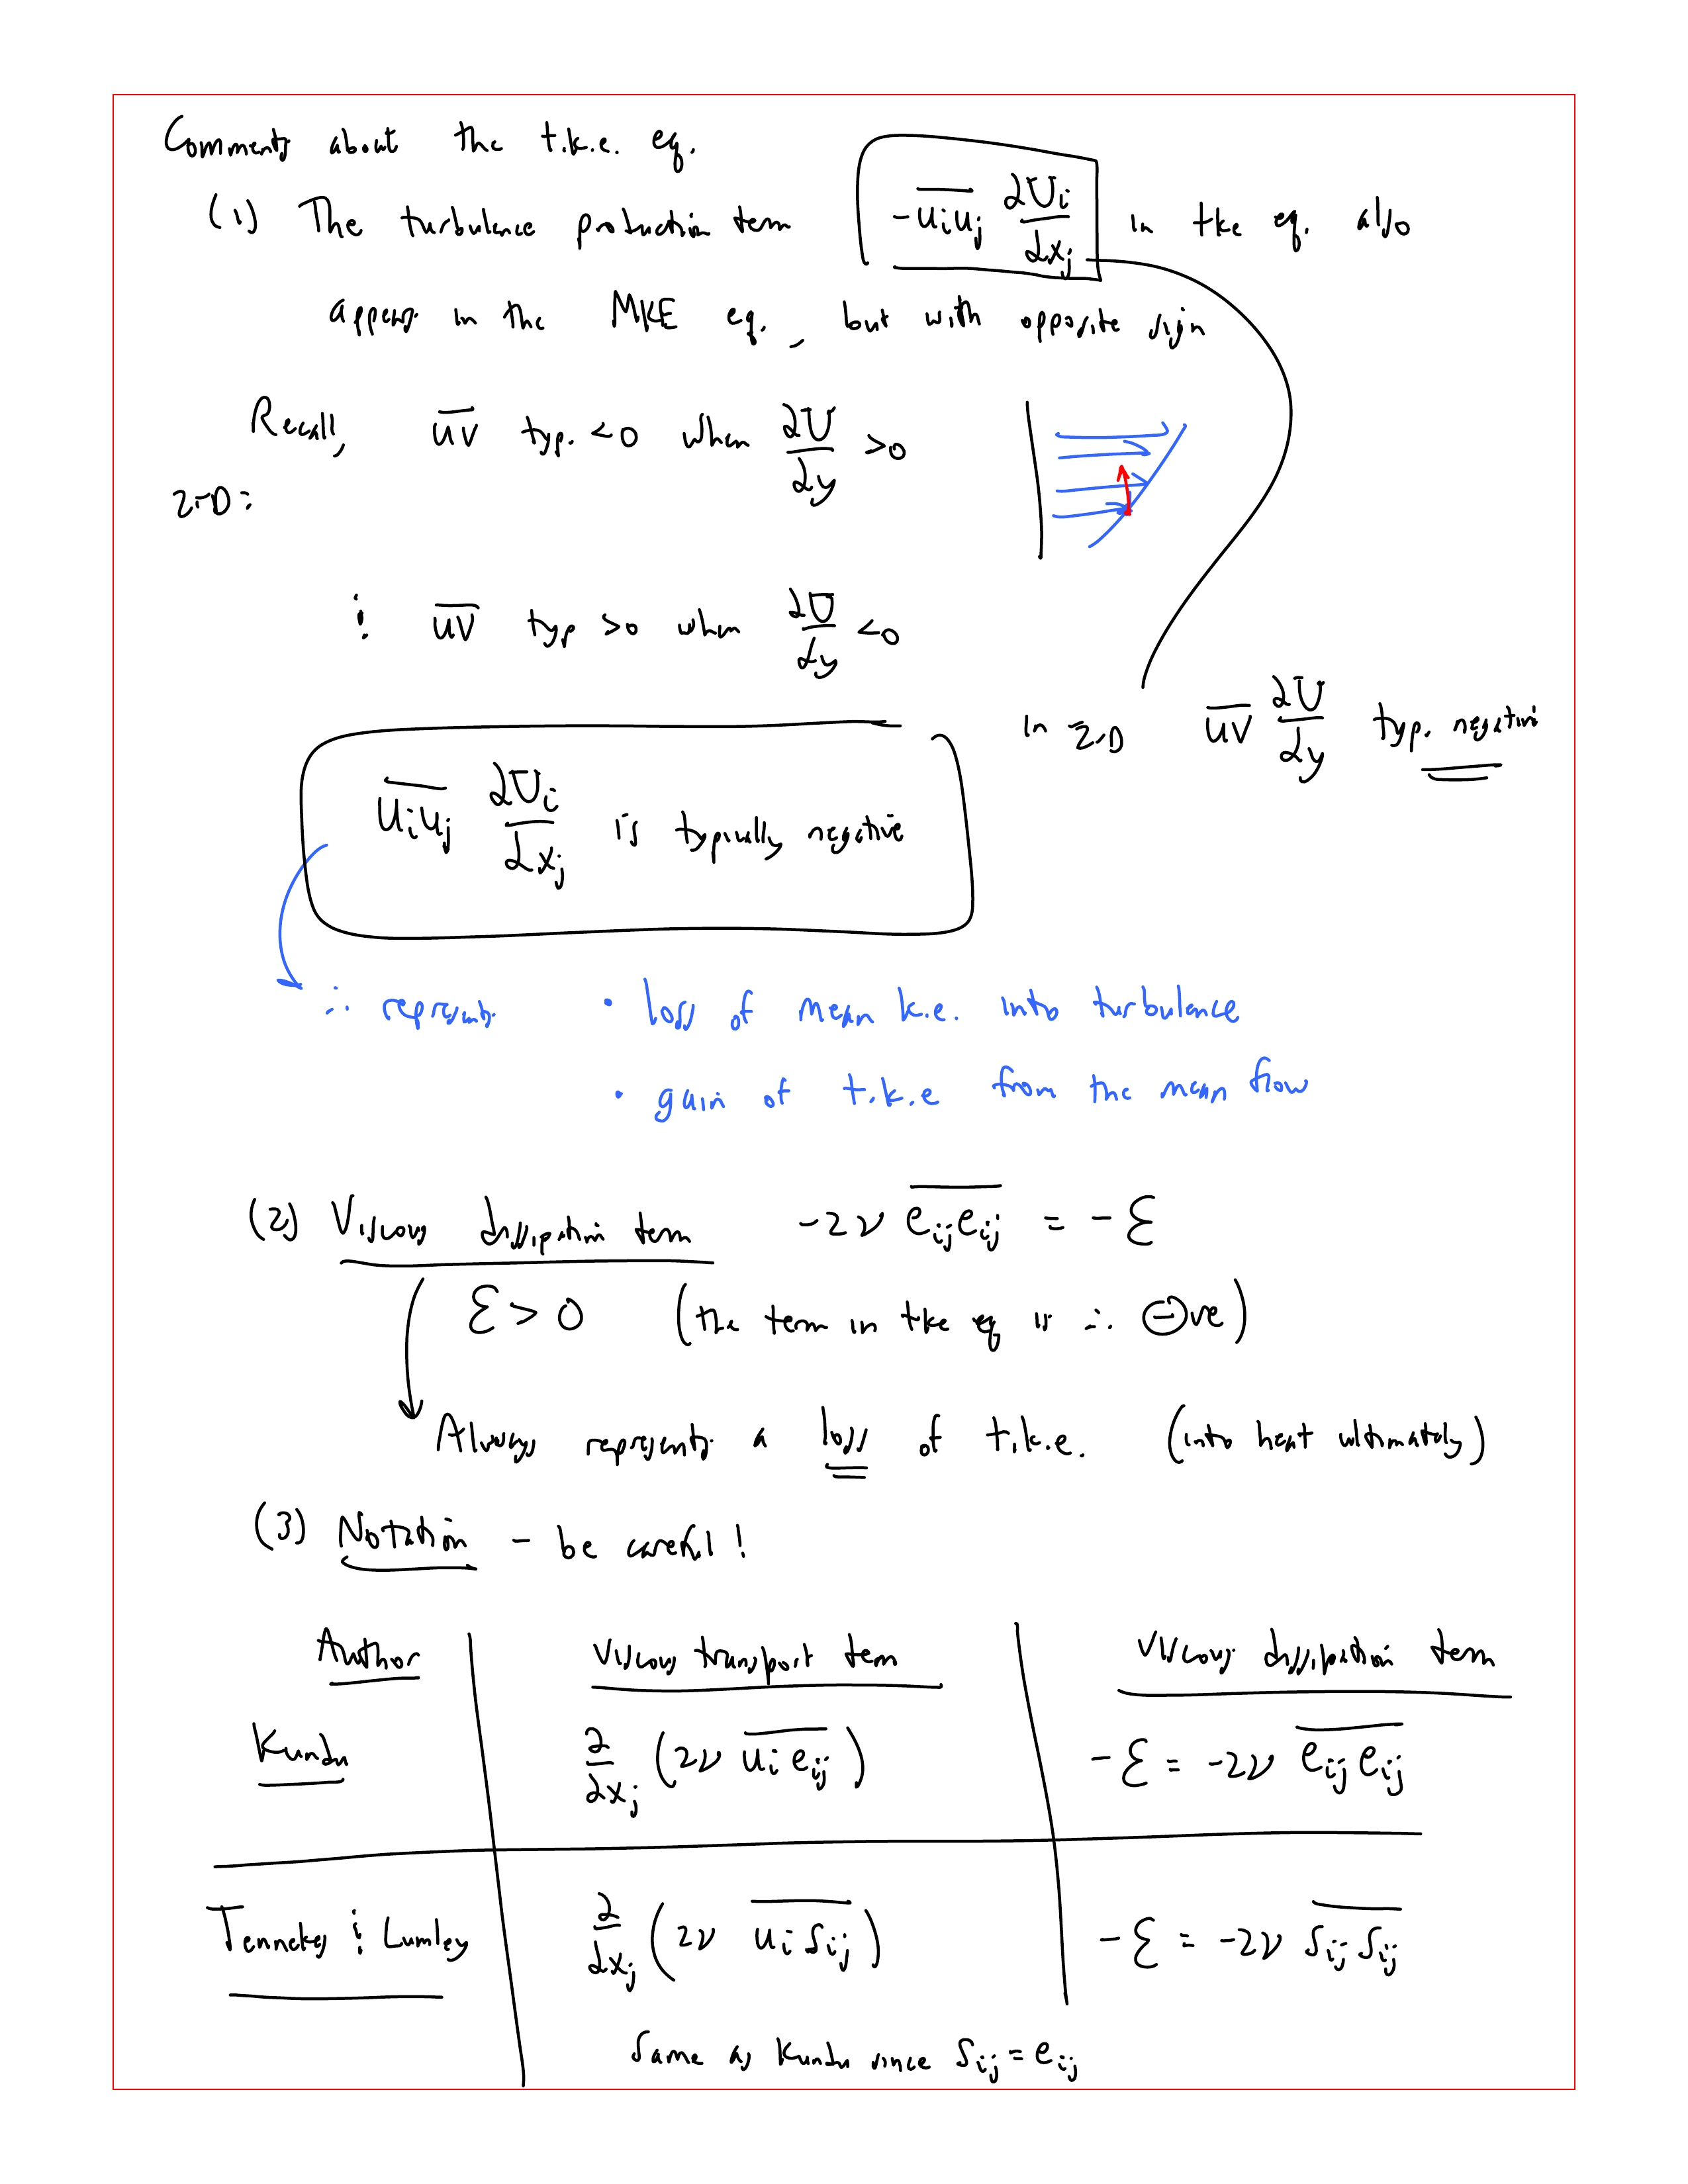 Comments about the t.k.e. eq.
(1) The turbulence production term $-\overline{u_i u_j} \frac{\partial U_i}{\partial x_j}$ in tke eq. also
appears in the MKE eq., but with opposite sign
Recall, $\overline{uv}$ typ. <0 when $\frac{\partial U}{\partial y}$ >0
2-D:
& $\overline{uv}$ typ >0 when $\frac{\partial U}{\partial y}$ <0
In 2-D $\overline{uv} \frac{\partial U}{\partial y}$ typ. negative
$\overline{u_i u_j} \frac{\partial U_i}{\partial x_j}$ is typically negative
∴ represents • loss of mean k.e. into turbulence
• gain of t.k.e from the mean flow
(2) Viscous dissipation term $-2\nu \overline{e_{ij} e_{ij}} = -\varepsilon$
$\varepsilon > 0$ (the term in tke eq is ∴ ⊖ve)
Always represents a loss of t.k.e. (into heat ultimately)
(3) Notation - be careful!
Author Viscous transport term Viscous dissipation term
Kundu $\frac{\partial}{\partial x_j} (2\nu \overline{u_i e_{ij}})$ $-\varepsilon = -2\nu \overline{e_{ij} e_{ij}}$
Tennekes & Lumley $\frac{\partial}{\partial x_j} (2\nu \overline{u_i s_{ij}})$ $-\varepsilon = -2\nu \overline{s_{ij} s_{ij}}$
Same as Kundu since $s_{ij} = e_{ij}$